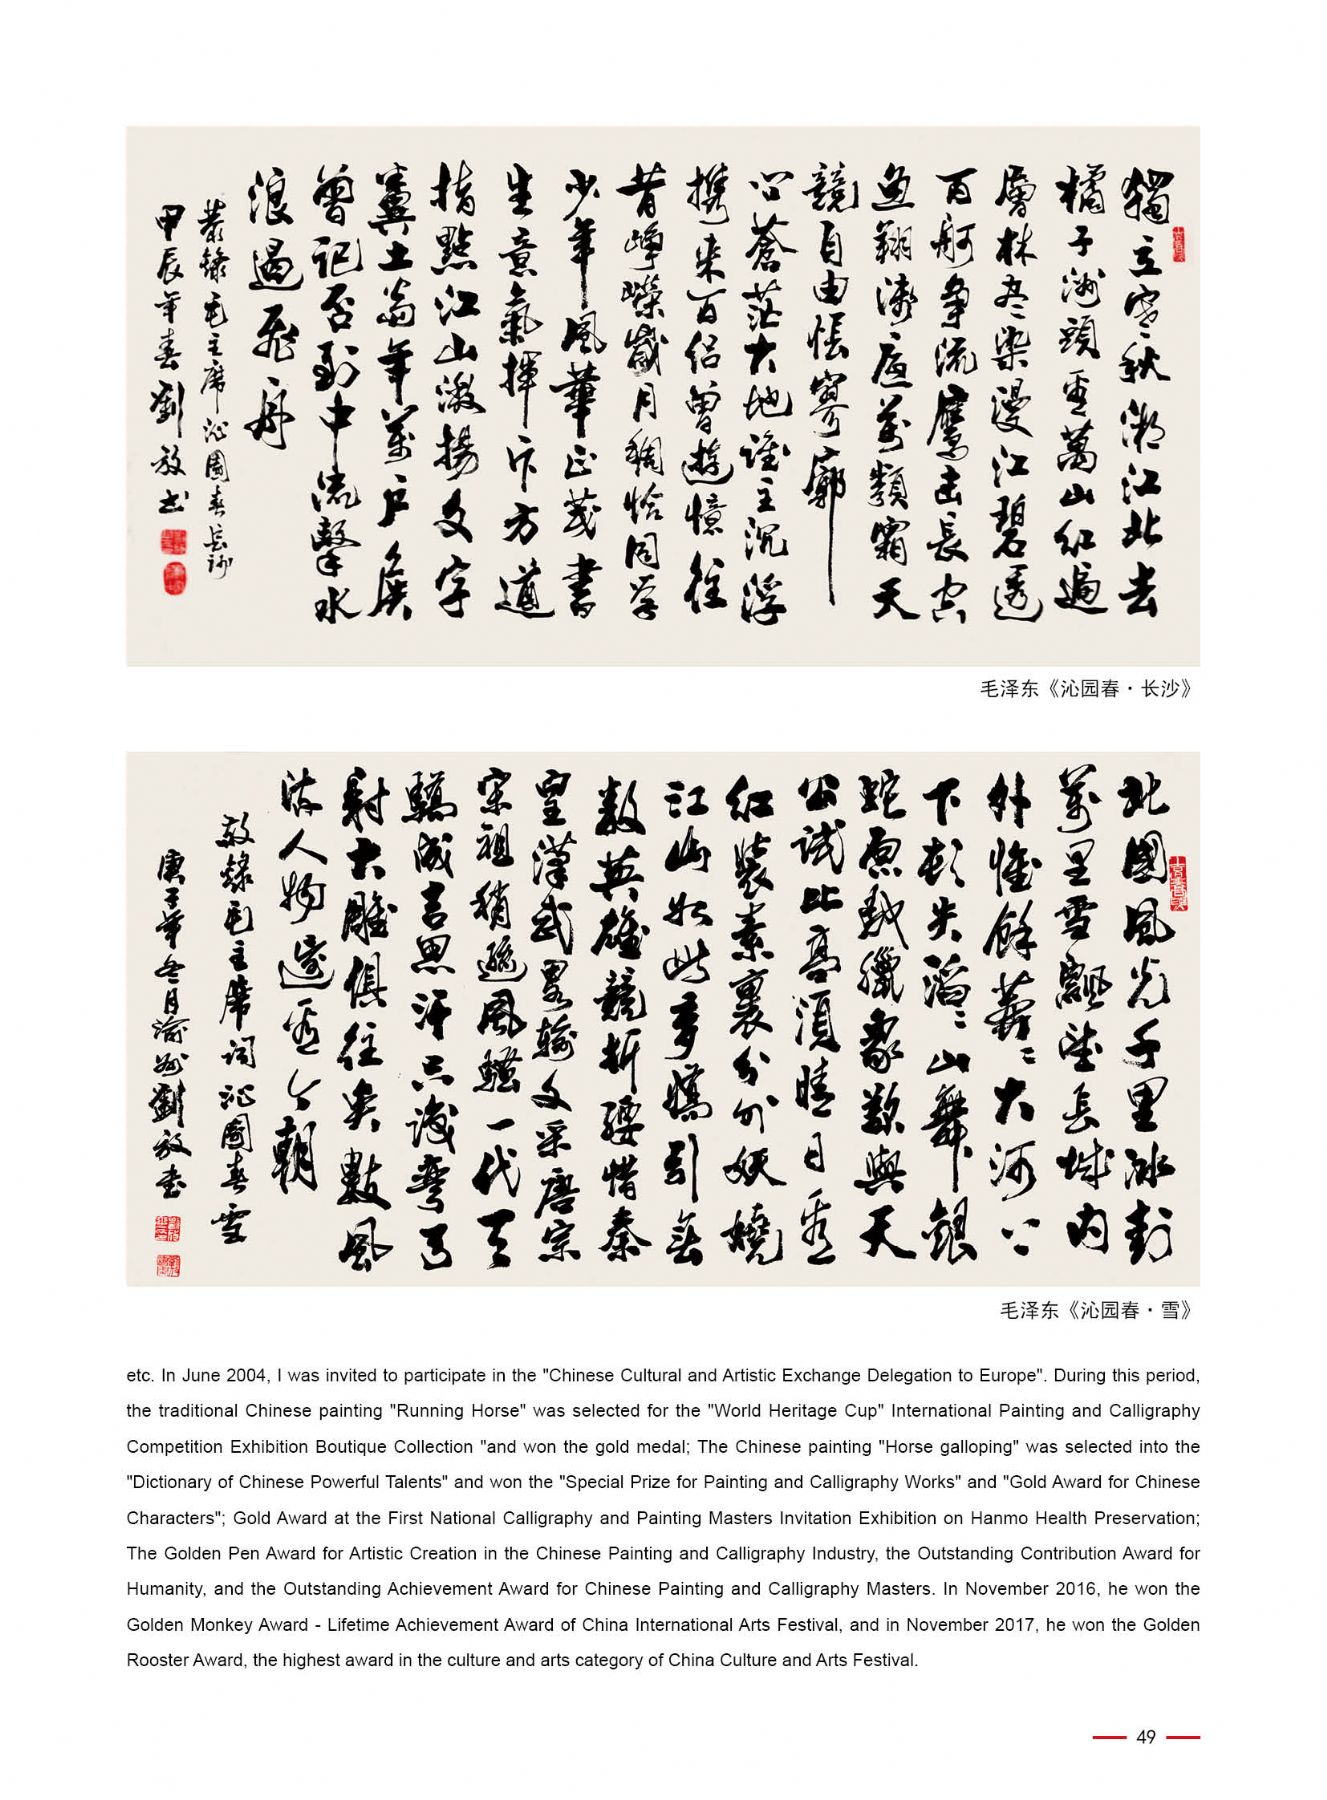 獨立寒秋湘江北去
橘子洲頭看萬山紅遍
層林盡染漫江碧透
百舸争流鷹击長空
魚翔淺底萬類霜天
競自由悵寥廓
问蒼茫大地誰主沉浮
携来百侣曾遊憶往
昔崢嶸歲月稠恰同学
少年風華正茂書
生意氣揮斥方遒
指點江山激揚文字
糞土當年萬户侯
曾記否到中流擊水
浪遏飛舟
恭錄毛主席沁園春長沙
甲辰年春劉放书
毛泽东《沁园春·长沙》
北國風光千里冰封
萬里雪飄望長城内
外惟餘莽〻大河上
下頓失滔〻山舞銀
蛇原馳臘象欲與天
公試比高須晴日看
红裝素裹分外妖嬈
江山如此多嬌引無
数英雄競折腰惜秦
皇漢武畧輸文采唐宗
宋祖稍遜風騷一代天
驕成吉思汗只識彎弓
射大雕俱往矣數風
流人物還看今朝
敬錄毛主席词沁園春雪
庚子年冬月渝州劉放書
毛泽东《沁园春·雪》
etc. In June 2004, I was invited to participate in the "Chinese Cultural and Artistic Exchange Delegation to Europe". During this period,
the traditional Chinese painting "Running Horse" was selected for the "World Heritage Cup" International Painting and Calligraphy
Competition Exhibition Boutique Collection "and won the gold medal; The Chinese painting "Horse galloping" was selected into the
"Dictionary of Chinese Powerful Talents" and won the "Special Prize for Painting and Calligraphy Works" and "Gold Award for Chinese
Characters"; Gold Award at the First National Calligraphy and Painting Masters Invitation Exhibition on Hanmo Health Preservation;
The Golden Pen Award for Artistic Creation in the Chinese Painting and Calligraphy Industry, the Outstanding Contribution Award for
Humanity, and the Outstanding Achievement Award for Chinese Painting and Calligraphy Masters. In November 2016, he won the
Golden Monkey Award - Lifetime Achievement Award of China International Arts Festival, and in November 2017, he won the Golden
Rooster Award, the highest award in the culture and arts category of China Culture and Arts Festival.
49